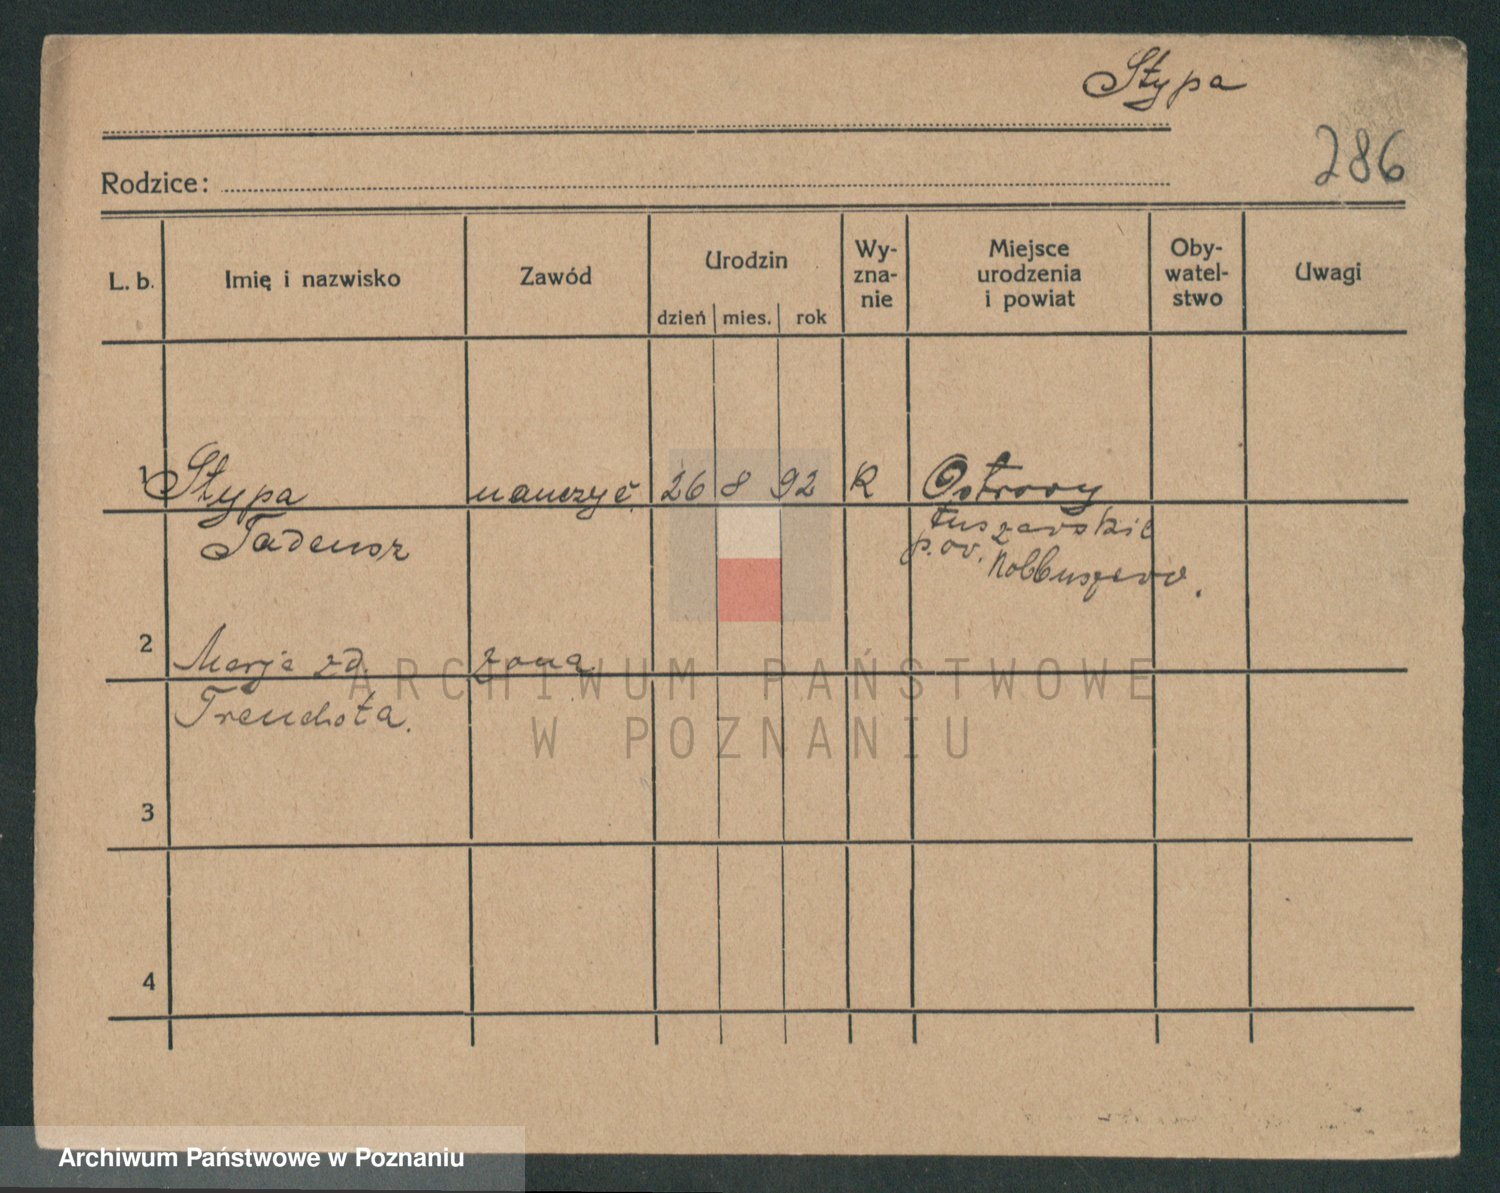 Stypa
286
Rodzice:
L. b. Imię i nazwisko Zawód Urodzin dzień mies. rok Wy-zna-nie Miejsce urodzenia i powiat Oby-watel-stwo Uwagi
1 Stypa nauczyc. 26 8 92 R Ostrowy
Tadeusz Tuszowskie
pow. Kolbuszowa.
2 Marja zd żona
Trenchota.
3
4
ARCHIWUM PAŃSTWOWE
W POZNANIU
Archiwum Państwowe w Poznaniu